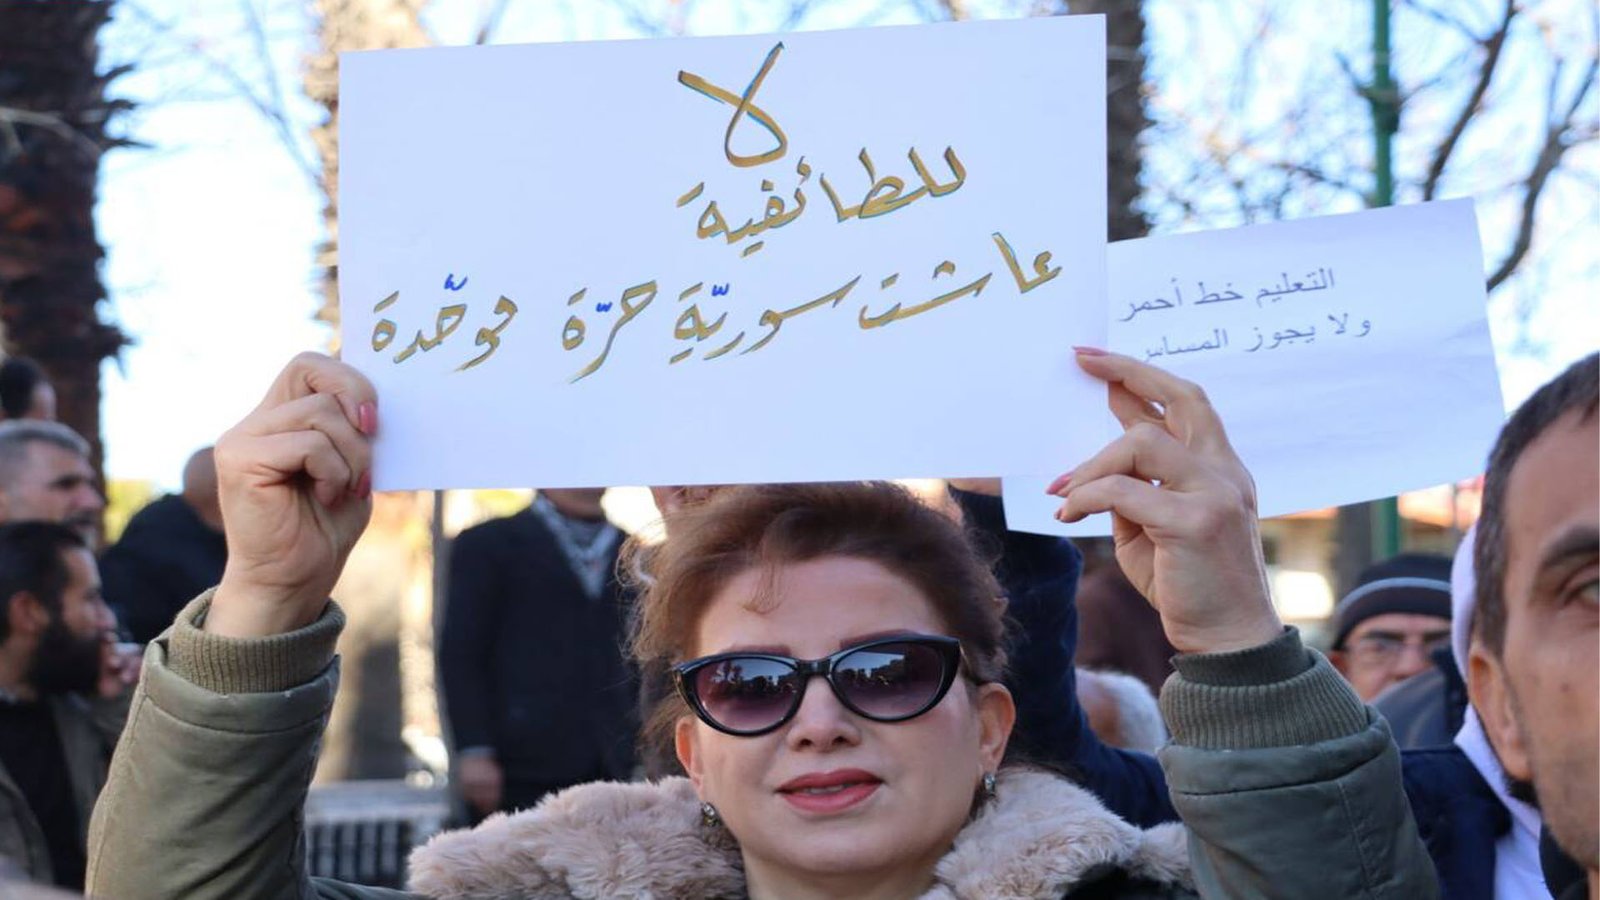 لا
للطائفية
عاشت سوريّة حرّة موحّدة
التعليم خط أحمر
ولا يجوز المساس